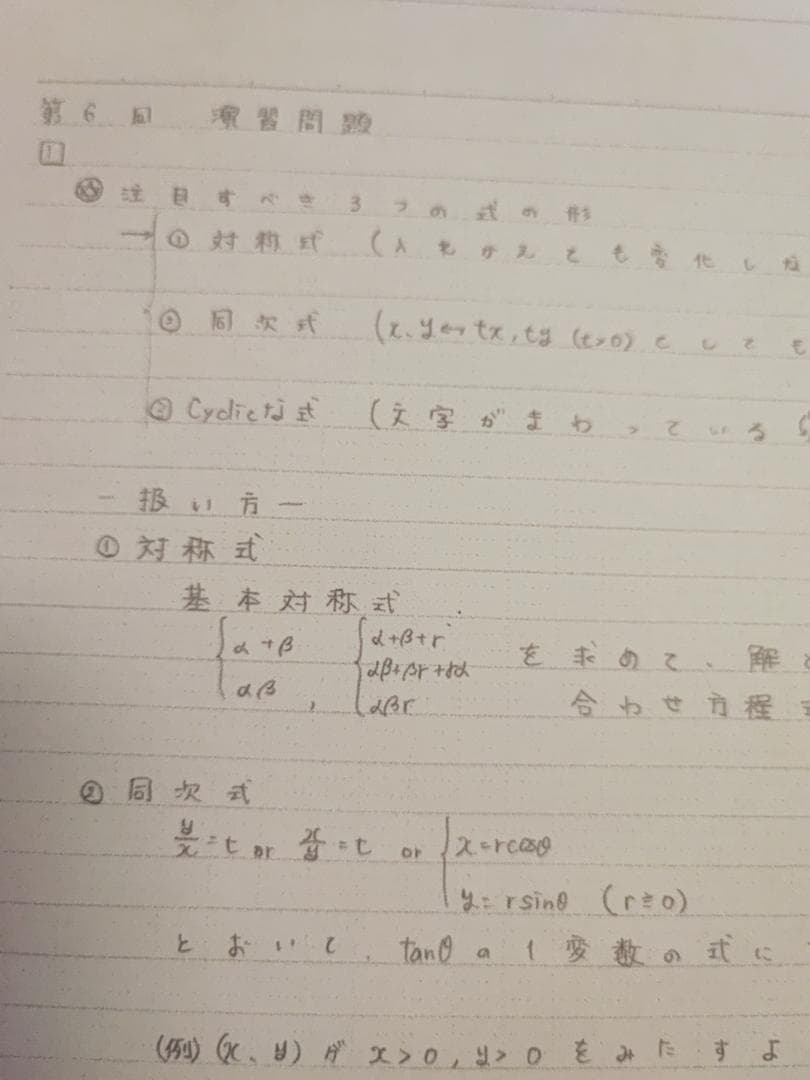 第6回 演習問題
1
注目すべき3つの式の形
→① 対称式 (入れかえても変化しな
② 同次式 (x、y↔tx, ty (t>0) としても
③ Cyclicな式 (文字がまわっている
- 扱い方 -
① 対称式
基本対称式
{α+β {α+β+γ を求めて、解と
αβ , αβ+βγ+γα
αβγ 合わせ方程式
② 同次式
y/x=t or x/y=t or {x=rcosθ
y=rsinθ (r≧0)
とおいて、tanθの1変数の式に
(例) (x、y) が x>0, y>0 をみたすよ